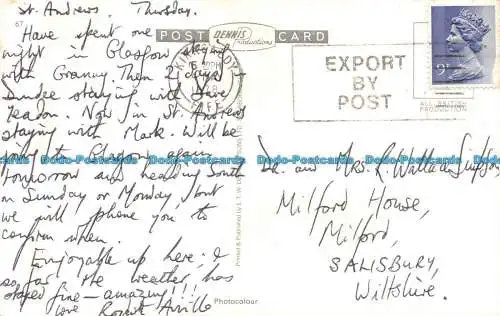 St. Andrews. Thursday.
67
Have spent one
night in Glasgow
with Granny. Then 2 days in
Dundee staying with
Teadon. Now in St. Andrews
staying with Mark. Will be
going to Glasgow again
tomorrow and heading South
on Sunday or Monday, but
we will phone you to
confirm when.
Enjoyable up here. &
so far the weather has
stayed fine - amazing!!!
love
POST CARD
DENNIS
Productions
KIRKCALDY
FIFE
EXPORT
BY
POST
9P
ALL BRITISH
PRODUCTION
Printed & Published by E.T.W.
Dr. and Mrs. R. Wallace Simpson
Milford House,
Milford,
SALISBURY,
Wiltshire.
Photocolour.
Dodo-Postcards Dodo-Postcards Dodo-Postcards Dodo-Postcards